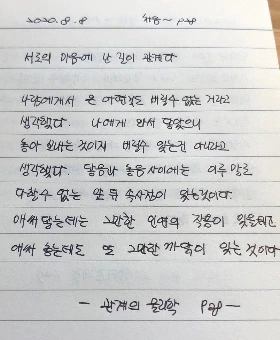 2020.8.8 처음~p28
서로의 마음에 난 길이 관계다
사람에게서 온 어떤것도 버릴수 없는 거라고
생각했다. 나에게 와서 닿았으니
놓아 보내는 것이지 버릴수 있는건 아니라고
생각했다. 닿음과 놓음사이에는 이루 말로
다할수 없는 앞 뒤 속사정이 있는것이다.
애써 닿는데는 그만한 인연의 작용이 있을테고
애써 놓는데도 또 그만한 까닭이 있는 것이다
- 관계의 물리학 p28 -